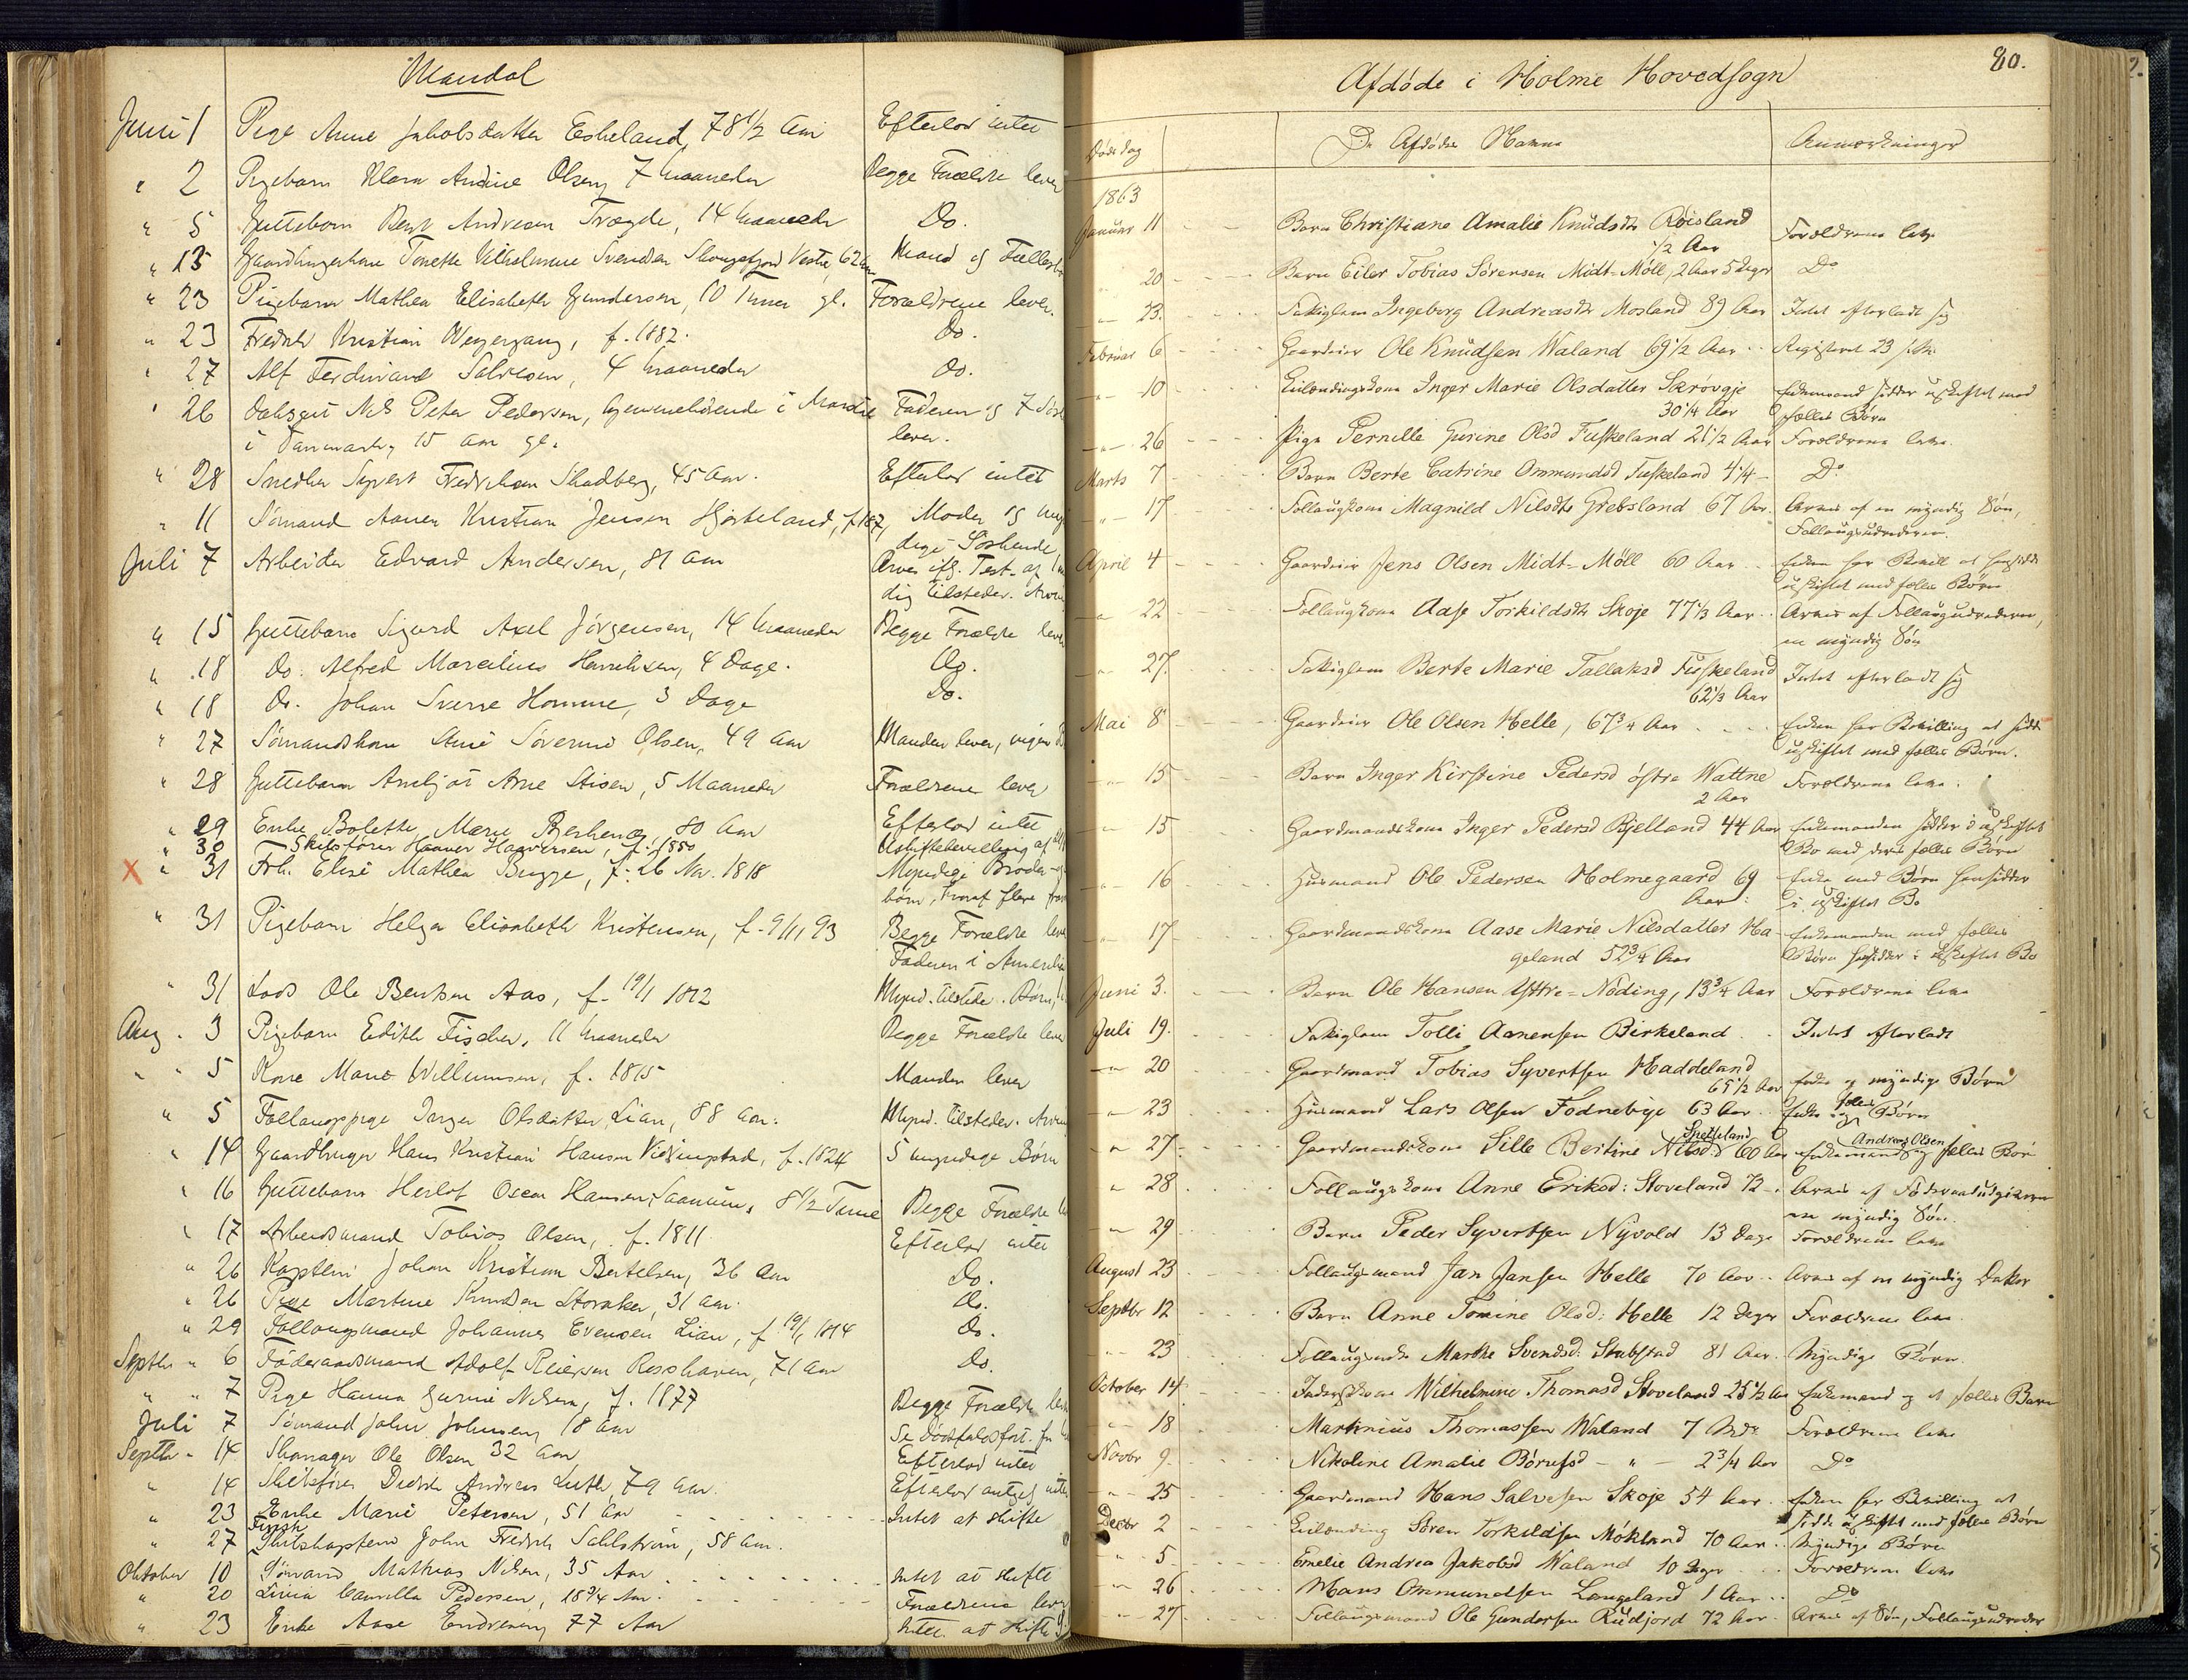 Mandal
Juni 1 Pige Anne Jakobsdatter Eskeland, 78 1/2 Aar Efterlod intet
" 2 Pigebarn Klara Andine Olsen, 7 Maaneder Begge Forældre lever
" 5 Guttebarn Bent Andresen Trægde, 14 Maaneder Do.
" 13 Gaardbrugerkone Tonette Vilhelmine Svendsen Skogsfjord Vestre, 62 Aar Mand og Fællesb
" 23 Pigebarn Mathea Elisabeth Gundersen, 10 Timer gl. Forældrene lever.
" 23 Fredrik Kristian Weyergang, f. 1882. Do.
" 27 Alf Ferdinand Salvesen, 4 Maaneder Do.
" 26 Dæksgut Nils Peter Pedersen, hjemmehørende i Marstal Faderen og 7 Søsk
i Danmark, 15 Aar gl. lever.
" 28 Snedker Sivert Fredriksen Skadberg, 45 Aar. Efterlod intet
" 11 Sømand Aanen Kristian Jensen Hjorteland, f. 187 Moder og myn
dige Søskende
Juli 7 Arbeider Edvard Andersen, 81 Aar Arves iflg. Test. af
dig tilsteder. Arv
" 15 Guttebarn Sigurd Axel Jørgensen, 14 Maaneder Begge Forældre lever
" 18 Do. Alfred Marcelius Henriksen, 4 Dage. Do.
" 18 Do. Johan Sverre Homme, 3 Dage Do.
" 27 Sømandskone Ane Søverine Olsen, 49 Aar Manden lever, ingen B
" 28 Guttebarn Ansbjør Arne Stisen, 5 Maaneder Forældrene lever
" 29 Enke Bolette Marie Berhenæs, 80 Aar Efterlod intet
" 30 Skibsfører Haaver Haaversen, f. 1850 Uskiftebevilling af
X " 31 Frk. Elise Mathea Bugge, f. 26 Nov. 1818 Myndige Broder-og
børn, hvoraf flere fra
" 31 Pigebarn Helga Elisabeth Kristensen, f. 9/11 93 Begge Forældre lever
Faderen i Amerika
" 31 Lods Ole Bentsen Aas, f. 19/1 1812 Mynd. tilstede. Børn,
Aug. 3 Pigebarn Edith Fischer, 11 Maaneder Begge Forældre lever
" " 5 Kone Marie Willumsen, f. 1815 Manden lever
" 5 Follaugspige Inger Olsdatter Lian, 88 Aar. Mynd. tilsteder. Arvin
" 14 Gaardbruger Hans Kristian Hansen Vidringstad, f. 1824 5 myndige Børn
" 16 Guttebarn Herlof Oscar Hansen Saanum, 8 1/2 Time Begge Forældre
" 17 Arbeidsmand Tobias Olsen, f. 1811 Efterlod intet
" 26 Kaptein Johan Kristian Bertelsen, 36 Aar Do.
" 26 Pige Martine Knudsen Storaker, 31 Aar. Do.
" 29 Follaugsmand Johannes Evensen Lian, f. 19/1 1814 Do.
Septbr " 6 Føderaadsmand Adolf Reiersen Rosshaven, 71 Aar Do.
" " 7 Pige Hanna Gurine Nilsen, f. 1877 Begge Forældre lev
Juli 7 Sømand John Johnsen, 18 Aar Se dødsfaldsfort. fra
Septbr " 14 Ole Olsen 32 Aar Efterlod intet
" 14 Skibsfører Didrik Andreas Luth, 79 Aar. Efterlod intet
" 23 Enke Marie Petersen, 51 Aar Intet at skifte
" 27 Finsk Skibskaptein John Fredrik Sahlström, 58 Aar.
Oktober 10 Sømand Mathias Nilsen, 35 Aar Intet at skifte
" 20 Livia Camilla Pedersen, 18 3/4 Aar. Forældrene lever
" 23 Enke Aase Endresen, 77 Aar Intet at skifte
80.
Afdøde i Holme Hovedsogn
Dødsdag De Afdødes Navne Anmærkninger
1863
Januar 11 Barn Christiane Amalie Knudsdtr Røisland Forældrene leve
1/2 Aar
20 Barn Eiler Tobias Sørensen Midt-Møll, 2 Aar 5 Dage Do
" 23. Fattiglem Ingeborg Andreasdtr Mosland 89 Aar Intet efterladt sig
Februar 6 Gaardeier Ole Knudsen Waland 69 1/2 Aar Registeret 23
" 10 Inger Marie Olsdatter Skrøvgje Enkemand sidder uskiftet med
30 1/4 Aar fælles Børn
" 26 Pige Pernille Gurine Olsd Fuskeland 21 1/2 Aar Forældrene leve.
Marts 7 Barn Berte Catrine Ommundsd Fuskeland 4 1/4 Do
" 17 Follaugskone Magnild Nilsdtr Grebsland 67 Aar. Arves af en myndig Søn,
Follaugsudrederen.
April 4 Gaardeier Jens Olsen Midt-Møll 60 Aar Enken har Bevill. at hensidde
uskiftet med fælles Børn
" 22 Follaugskone Aase Torkildsdtr Skoje 77 1/3 Aar Arves af Follaugsudrederen,
en myndig Søn
" 27. Fattiglem Berte Marie Tallaksd Fuskeland Intet efterladt sig
62 1/3 Aar
Mai 8 Gaardeier Ole Olsen Helle, 67 3/4 Aar Enken har Bevilling at sidde
uskiftet med fælles Børn.
" 15 Barn Inger Kirstine Pedersd østre Wattne Forældrene leve.
2 Aar
" 15 Gaardmandskone Inger Pedersd Bjelland 44 Aar Enkemanden sidder i uskiftet
Bo med deres fælles Børn
" 16 Huusmand Ole Pedersen Holmegaard 69 Enke med Børn hensidder
Aar i uskiftet Bo
" 17 Gaardmandskone Aase Marie Nilsdatter Ha- Enkemanden med fælles
geland 52 3/4 Aar Børn hensidder i uskiftet Bo
Juni 3. Barn Ole Hansen Yttre-Nøding, 13 3/4 Aar Forældrene leve
Juli 19. Fattiglem Tolli Aanensen Birkeland Intet efterladt
" 20 Gaardmand Tobias Syvertsen Haddeland
65 1/2 Aar Enke og myndige Børn
" 23 Huusmand Lars Olsen Fodnebye 63 Aar Enke og fælles Børn
" 27 Gaardmandskone Sille Bertine Nilsd: Spetteland 60 Aar Enkemand Andreas Olsen og fælles Bør
" 28 Follaugskone Anne Eriksd: Stoveland 72 Arves af Føderaadudgiveren
en myndig Søn.
" 29 Barn Peder Syvertsen Nyvold 13 Dage Forældrene leve
August 23 Follaugsmand Jan Jansen Helle 70 Aar Arves af en myndig Datter
Septbr 12 Barn Anne Tomine Olsd: Helle 12 Dage Forældrene leve
" 23 Follaugsenke Marthe Svendsd: Stubstad 81 Aar. Myndige Børn.
October 14 Inderstkone Wilhelmine Thomasd Stoveland 25 1/2 Aar Enkemand og et fælles Barn
" 18 Martinius Thomassen Waland 7 Mdr Forældrene leve
Novbr 9. Nikoline Amalie Børufsd - " - 2 3/4 Aar Do
" 25 Gaardmand Hans Salvesen Skoje 54 Aar Enken har Bevilling at
sidde uskiftet med fælles Børn
Decbr 2 Søren Torkildsen Møkland 70 Aar Myndige Børn
" 5. Emelie Andrea Jakobsd Waland 10 Dage Forældrene leve
" 26 Hans Ommundsen Langeland 1 Aar Do
" 27 Follaugsmand Ole Gundersen Rudjord 72 Aar. Arves af Søn, Follaugsudreder